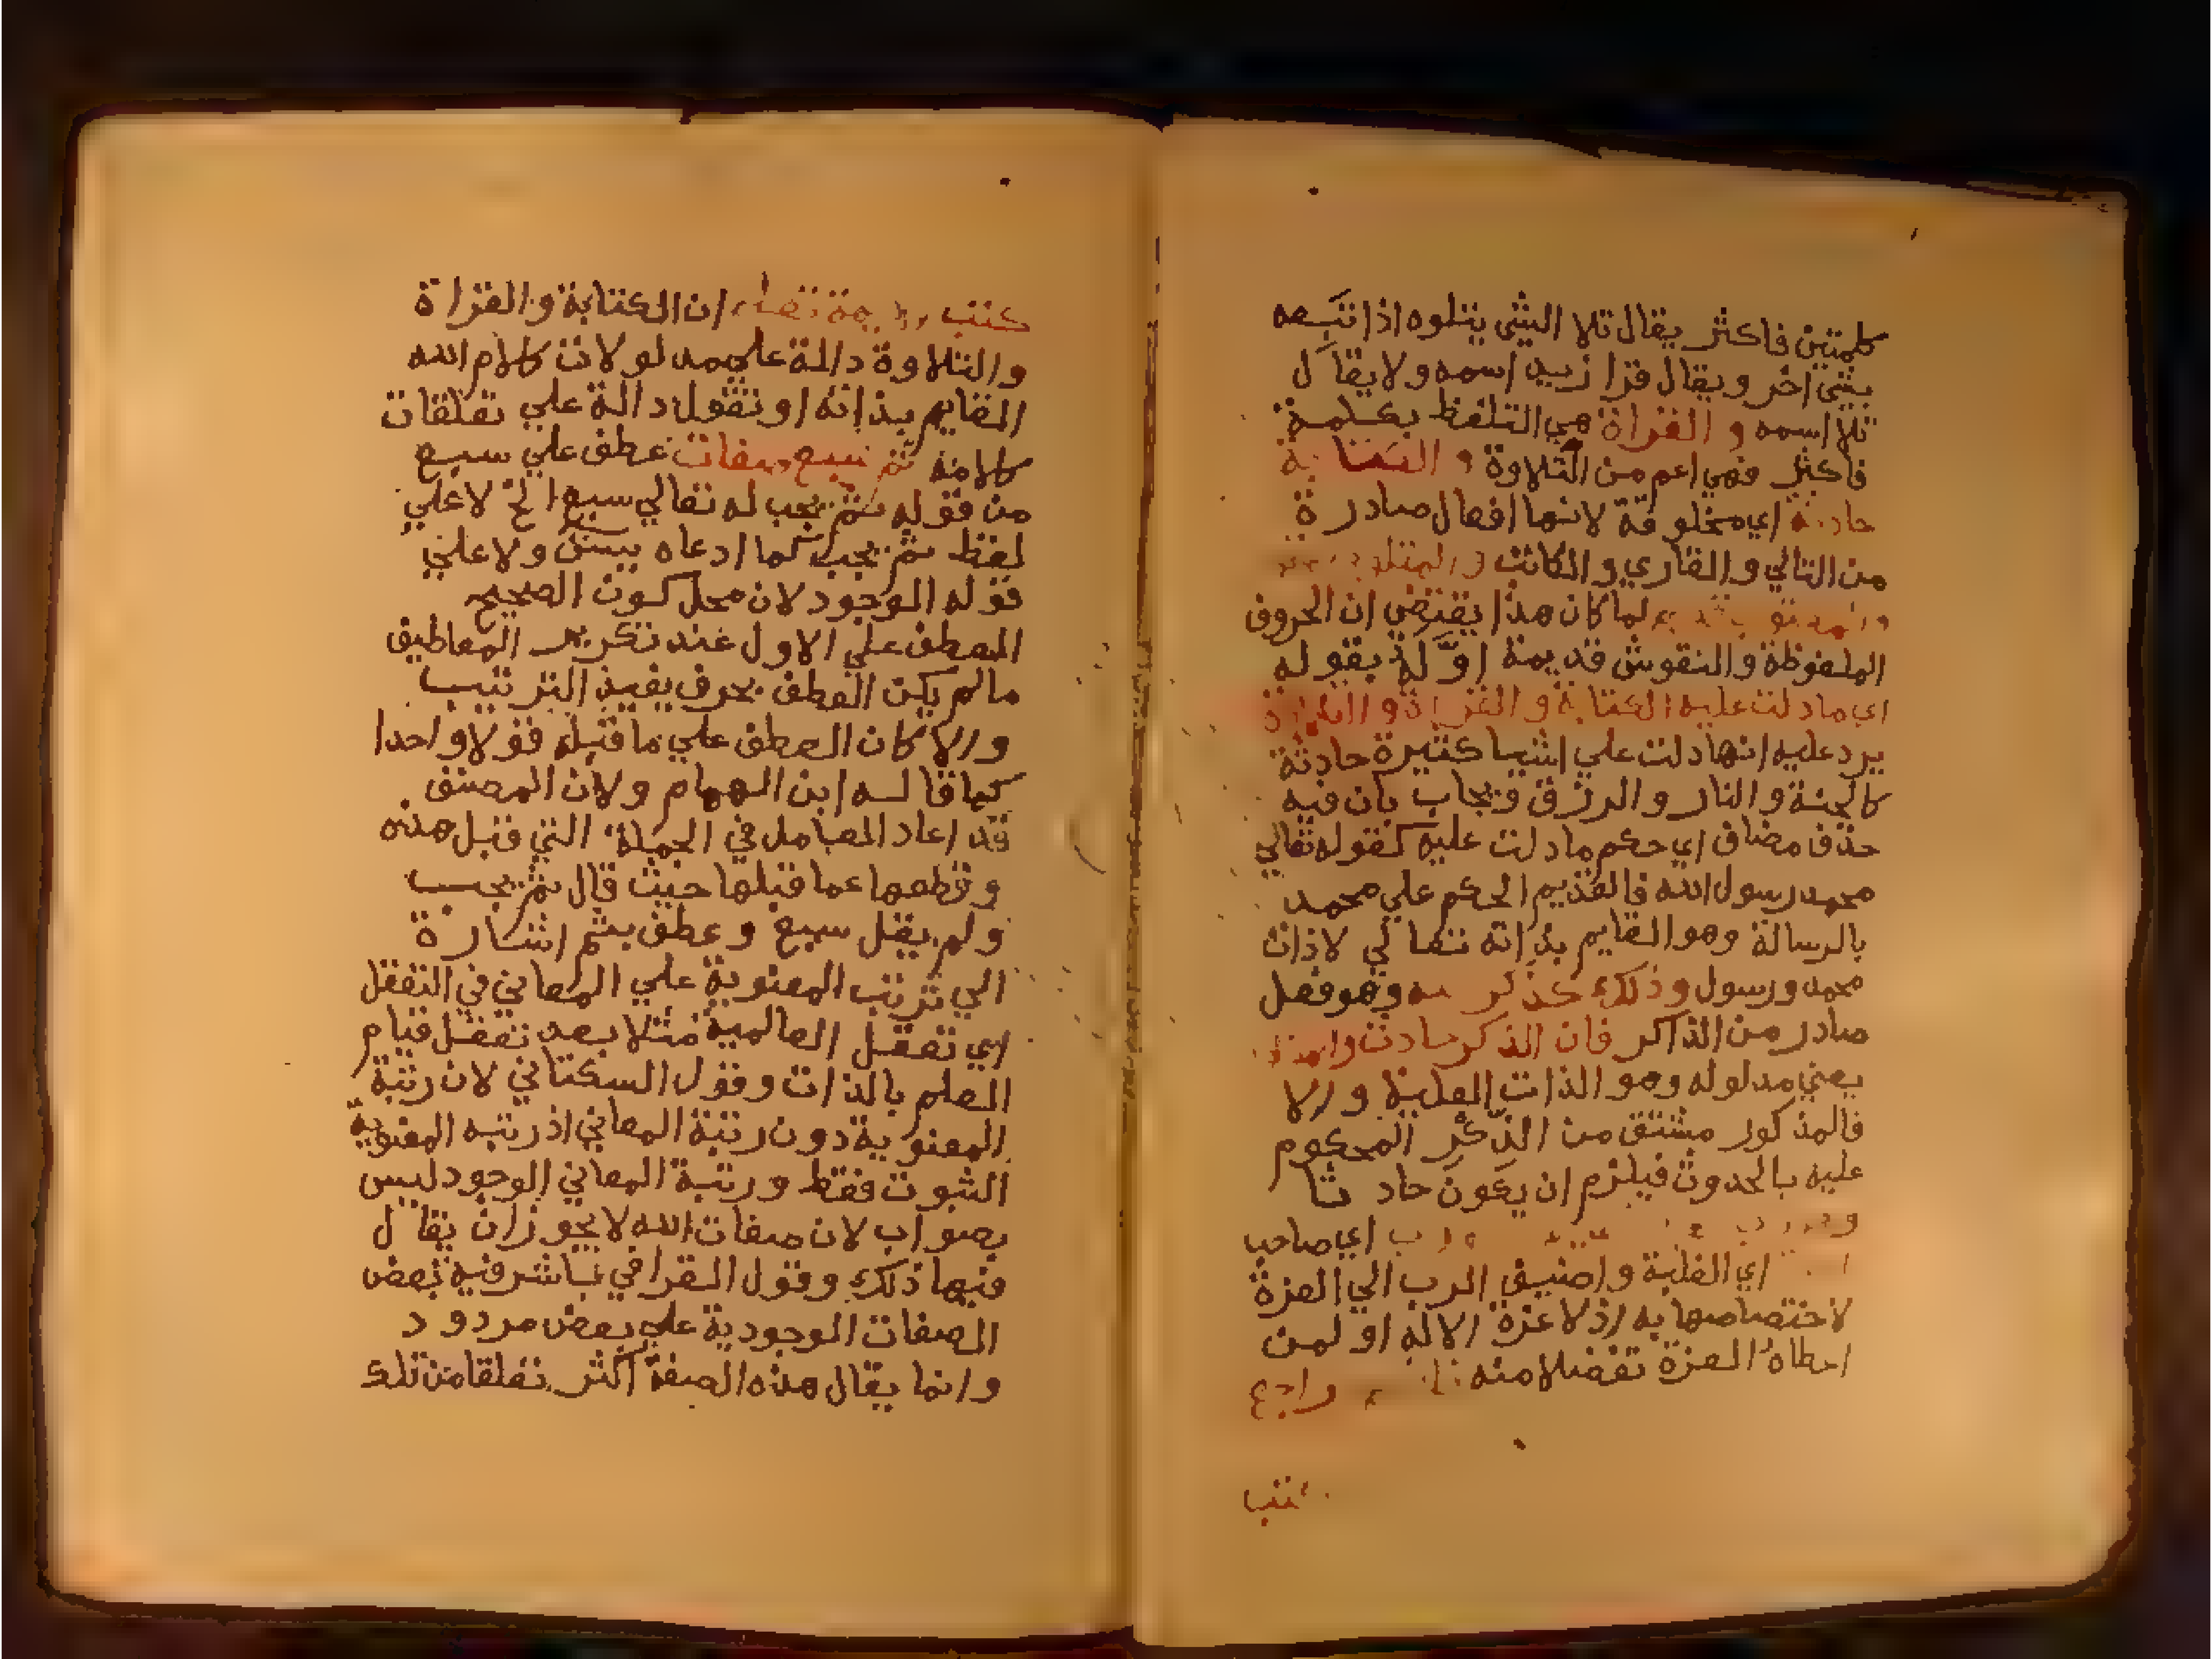 كلمتين فاكثر يقال تلا الشي يتلوه اذا تبعه
بشي اخر ويقال قرا زيد اسمه ولا يقال
تلا اسمه و القراة هي التلفظ بكلمة
فاكثر فهي اعم من التلاوة و الكتابة
حادثة اي مخلوقة لانها افعال صادرة
من التالي والقاري والكاتب و المتلو
لما كان هذا يقتضي ان الحروف
الملفوظة والنقوش قديمة اوّله بقوله
اي ما دلت عليه الكتابة والقراة والتلاوة
يرد عليه انها دلت علي اشيا كثيرة حادثة
كالجنة والنار والرزق ويجاب بان فيه
حذف مضاف اي حكم ما دلت عليه كقوله تعالي
محمد رسول الله فالقديم الحكم علي محمد
بالرسالة وهو القايم بذاته تعالي لا ذات
محمد ورسول وذلك كذكر الله وهو فعل
صادر من الذاكر فان الذكر حادث
يعني مدلوله وهو الذات العلية والا
فالمذكور مشتق من الذكر المحكوم
عليه بالحدوث فيلزم ان يكون حادثا
اي صاحب
اي الغلبة واضيف الرب الي العزة
لاختصاصها به اذ لا عزة الا له او لمن
اعطاه العزة تفضلا منه راجع
كتب
كتب ان الكتابة والقراة
والتلاوة دالة علي مدلولات كلام الله
القايم بذاته او نقول دالة علي تعلقات
كلامه ثم سبع صفات عطف علي سبع
من قوله ثم يجب له تعالي سبع الخ لا علي
لفظ ثم يجب كما ادعاه يس ولا علي
قوله الوجود لان محل كون الصحيح
العطف علي الاول عند تكرير المعاطيف
ما لم يكن العطف بحرف يفيد الترتيب
والا كان العطف علي ما قبله قولا واحدا
كما قاله ابن الهمام ولان المصنف
قد اعاد العامل في الجملة التي قبل هذه
وقطعها عما قبلها حيث قال ثم يجب
ولم يقل سبع وعطف بثم اشارة
الي ترتب المعنوية علي المعاني في التعقل
اي تعقل العالمية مثلا بعد تعقل قيام
العلم بالذات وقول السكتاني لان رتبة
المعنوية دون رتبة المعاني اذ رتبه المعنوية
الثبوت فقط ورتبة المعاني الوجود ليس
بصواب لان صفات الله لا يجوز ان يقال
فيها ذلك وقول القرافي باشرفية بعض
الصفات الوجودية علي بعض مردود
وانما يقال هذه الصفة اكثر تعلقا من تلك